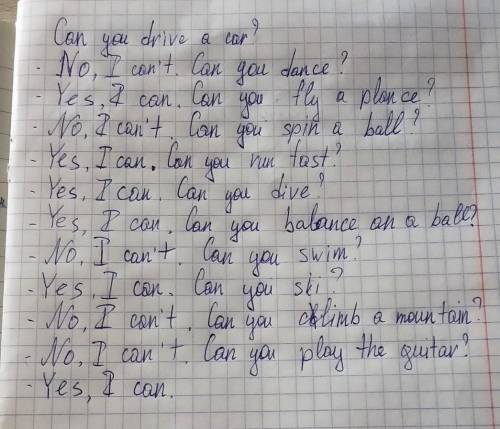 Can you drive a car?
- No, I can't. Can you dance?
- Yes, I can. Can you fly a plance?
- No, I can't. Can you spin a ball?
- Yes, I can. Can you run fast?
- Yes, I can. Can you dive?
- Yes, I can. Can you balance on a ball?
- No, I can't. Can you swim?
- Yes, I can. Can you ski?
- No, I can't. Can you climb a mountain?
- No, I can't. Can you play the guitar?
- Yes, I can.